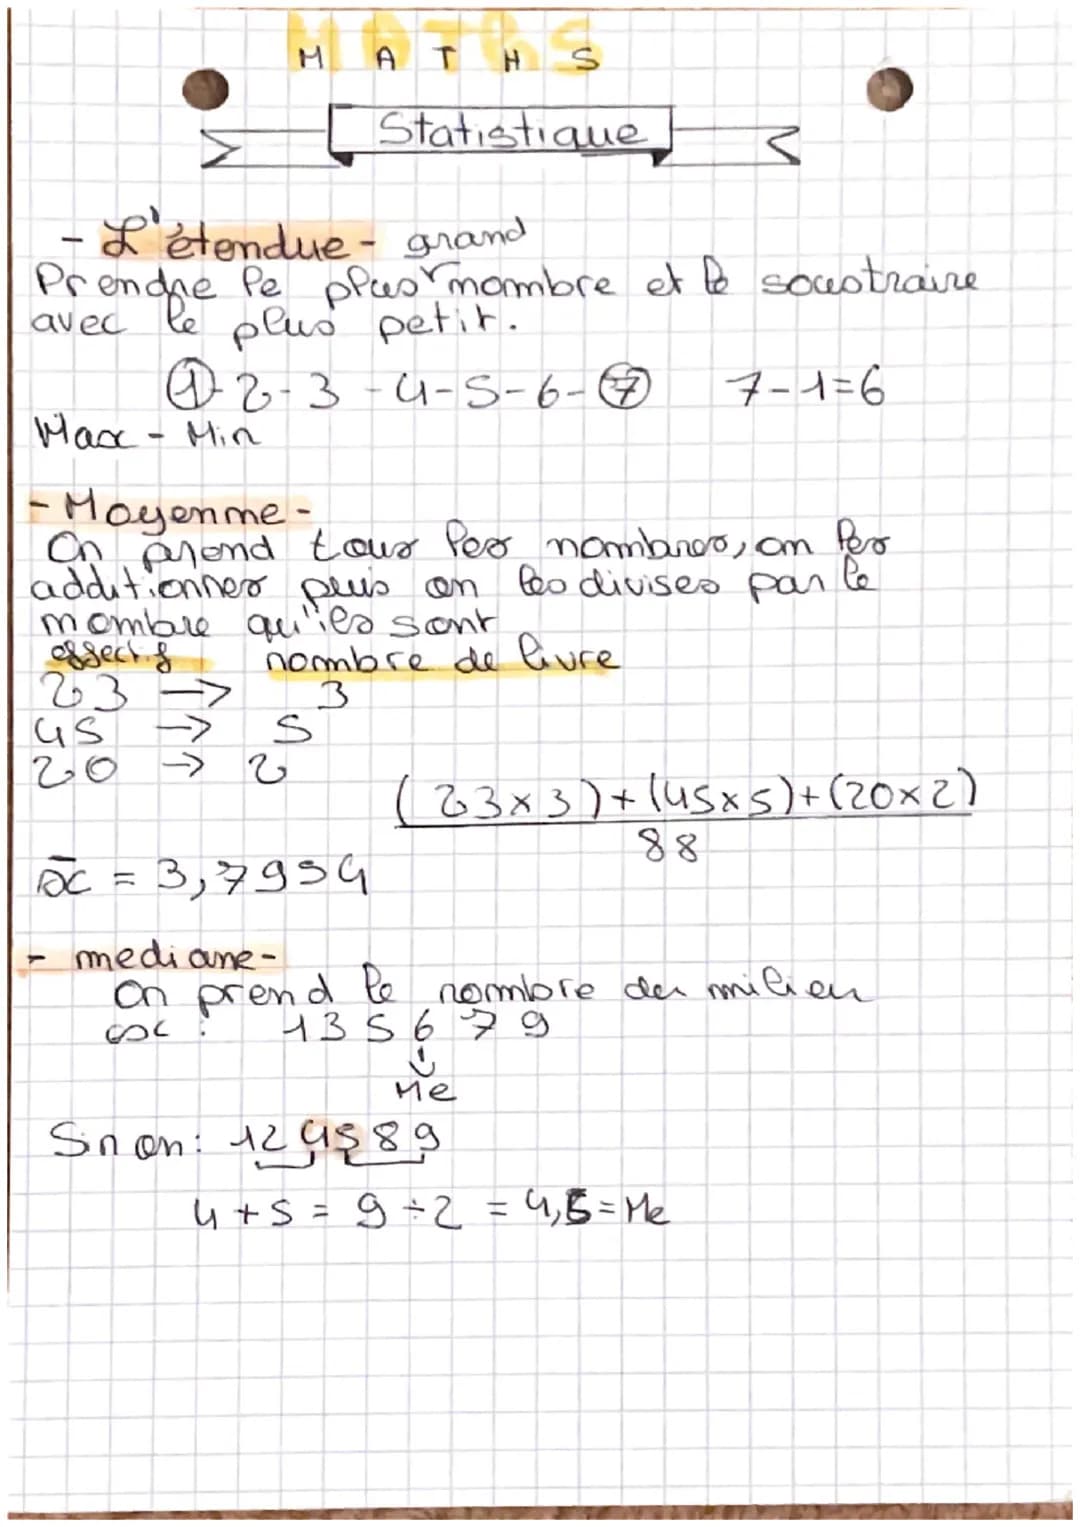 MATHS
M A T H S
Statistique
- L'étendue - grand
Prendre le plus nombre et le soustraire
avec le plus petit.
1-2-3-4-5-6-7 7-1=6
Max - Min
- Moyenne -
On prend tous les nombres, on les
additionnes puis on les divises par le
nombre qu'ils sont
effectif nombre de livre
23 → 3
45 → 5
20 → 2
(23×3)+(45×5)+(20×2)
88
x̄ = 3,7954
- mediane -
On prend le nombre du milieu
ex : 1 3 5 6 7 9
Me
Sinon: 1 2 4 5 8 9
4 + 5 = 9 ÷ 2 = 4,5 = Me